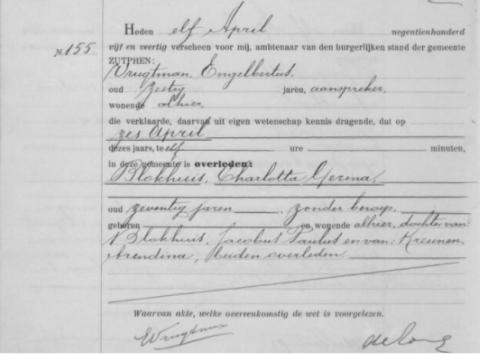 Heden elf April negentienhonderd
N. 155. vijf en veertig verscheen voor mij, ambtenaar van den burgerlijken stand der gemeente
ZUTPHEN:
Vrugtman, Engelbertus,
oud zestig jaren, aanspreker,
wonende alhier,
die verklaarde, daarvan uit eigen wetenschap kennis dragende, dat op
zes April
dezes jaars, te elf ure minuten,
in deze gemeente is overleden:
Blokhuis, Charlotta Gezina,
oud zeventig jaren, zonder beroep,
geboren en wonende alhier, dochter van
Blokhuis, Jacobus Paulus en van Kreunen
Arendina, beiden overleden.
Waarvan akte, welke overeenkomstig de wet is voorgelezen.
EVrugtman